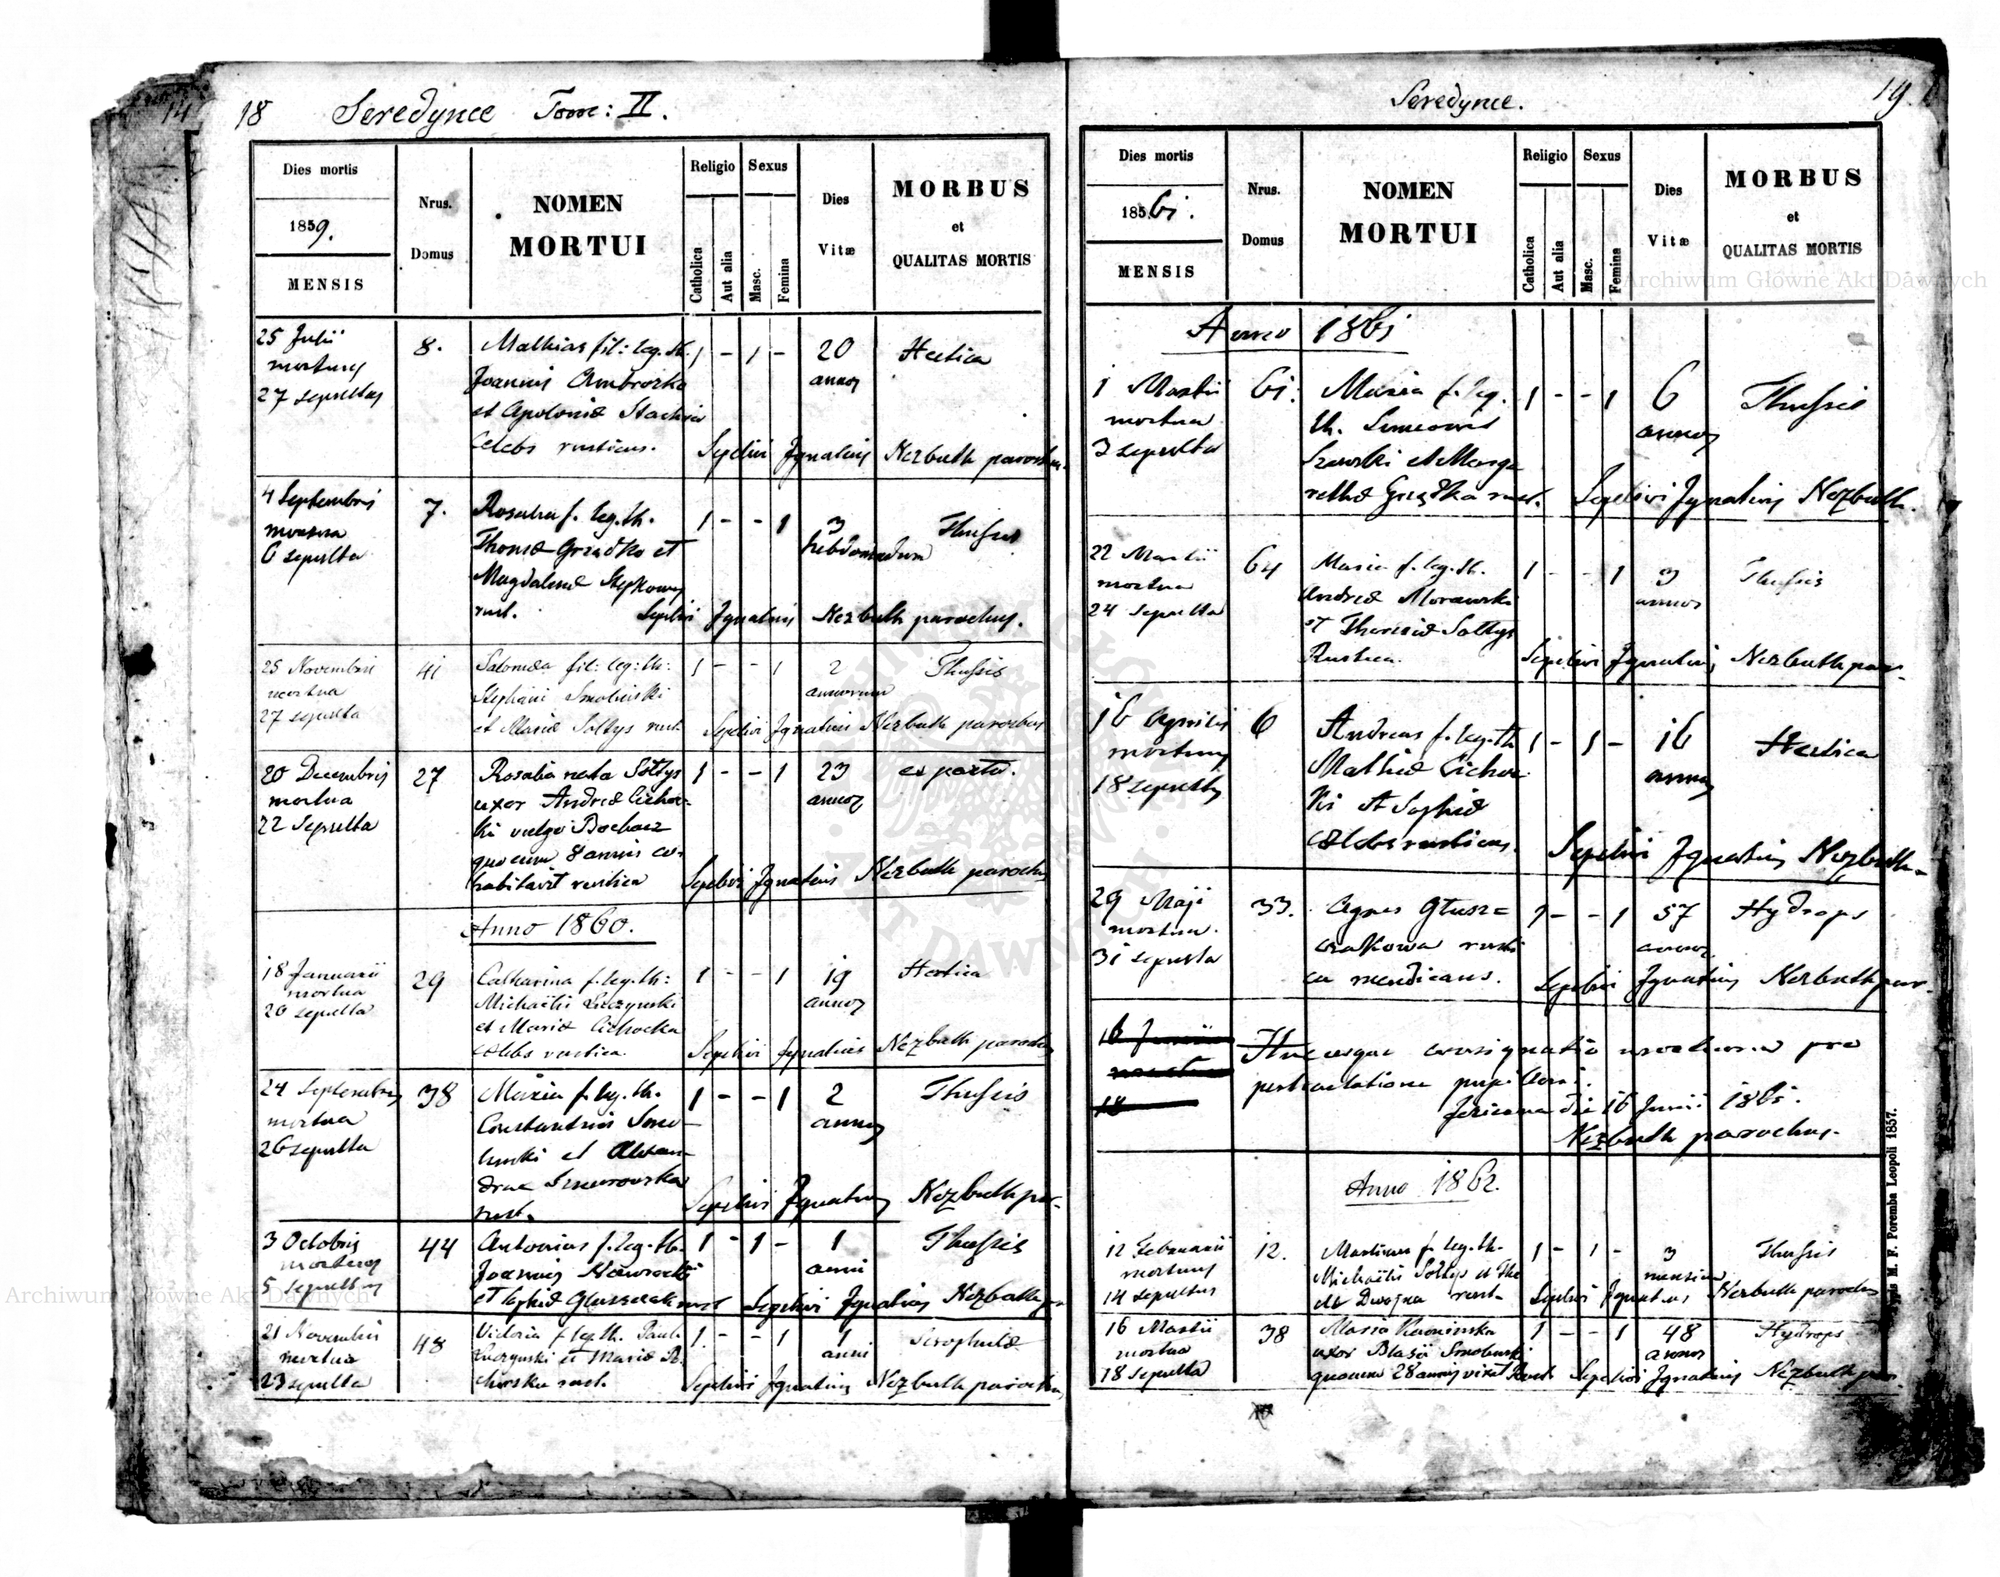 18 Seredynce Tom: II.
Dies mortis
1859.
MENSIS
Nrus.
Domus
NOMEN
MORTUI
Religio
Catholica
Aut alia
Sexus
Masc.
Femina
Dies
Vitæ
MORBUS
et
QUALITAS MORTIS
25 Julii 8. Mathias fil: leg. th. 1 - 1 - 20 Hectica
mortuus Joannis Ambrozka annor
27 sepultus et Apoloniæ
Celebs rusticus. Sepelivi Ignatius Nezbuth parochus
4 Septembris 7. Rosalia f. leg. th. 1 - - 1 3 Thussis
mortua Thomæ Grządko et hebdomadum
6 sepulta Magdalenæ
rust. Sepelivi Ignatius Nezbuth parochus.
25 Novembris 41 Salomea fil: leg: th: 1 - - 1 2 Thussis
mortua Stephani Smolinski annorum
27 sepulta et Mariæ Soltys rust. Sepelivi Ignatius Nezbuth parochus
20 Decembris 27 Rosalia nata Soltys 1 - - 1 23 ex partu.
mortua uxor Andreæ Cichoc- annor
22 Sepulta ki vulgo
quocum 8 annis co-
habitavit rustica Sepelivi Ignatius Nezbuth parochus
Anno 1860.
18 Januarii 29 Catharina f. leg. th: 1 - - 1 19 Hectica
mortua Michaëlis Luczynski annor
20 sepulta et Mariæ Cichocka
cælebs rustica Sepelivi Ignatius Nezbuth parochus
24 Septembris 38 Maria f. leg. th. 1 - - 1 2 Thussis
mortua Constantini Smo- annor
26 sepulta linski et Alexan-
drae
rust. Sepelivi Ignatius Nezbuth par.
3 Octobris 44 Antonius f. leg. th. 1 - 1 - 1 Thussis
mortuus Joannis Nawrocki anni
5 sepultus et Sophiæ rust Sepelivi Ignatius Nezbuth
21 Novembris 48 Victoria f leg. th. Pauli 1 - - 1 1
mortua Luczynski et Mariæ anni
23 sepulta rust. Sepelivi Ignatius Nezbuth parochus
Seredynce. 19.
Dies mortis
1861.
MENSIS
Nrus.
Domus
NOMEN
MORTUI
Religio
Catholica
Aut alia
Sexus
Masc.
Femina
Dies
Vitæ
MORBUS
et
QUALITAS MORTIS
Anno 1861
1 Martii 61. Maria f. leg. 1 - - 1 6 Thussis
mortua th. Simeonis annor
3 sepulta et Marga
rethæ Grządka rust. Sepelivi Ignatius Nezbuth.
22 Martii 64 Maria f. leg. th. 1 - - 1 3 Thussis
mortua Andreæ Morawski annor
24 sepulta et Theresiæ Soltys
Rustica. Sepelivi Ignatius Nezbuth par.
16 Aprilis 6 Andreas f. leg. th 1 - 1 - 16 Hectica
mortuus Mathiæ Cichoc annor
18 sepultus ki et Sophiæ
cælebs rusticus. Sepelivi Ignatius Nezbuth
29 Maji 33. Agnes Głusz= 1 - - 1 57 Hydrops
mortua. czakowa rusti annor
31 sepulta ca mendicans. Sepelivi Ignatius Nezbuth par.
16 Junii
mortua
18
Hucusque consignatio mortuorum pro
pertractatione pupillari.
die 16 Junii 1861.
Nezbuth parochus.
Anno 1862.
12 Februarii 12. Martinus f. leg. th. 1 - 1 - 3 Thussis
mortuus Michaëlis Soltys et The mensium
14 sepultus clæ Dwojna rust. Sepelivi Ignatius Nezbuth parochus
16 Martii 38 Maria 1 - - 1 48 Hydrops
mortua uxor Blasii Smolinski annor
18 sepulta quocum 28 annis vixit Rust Sepelivi Ignatius Nezbuth par.
Typis M. F. Poremba Leopoli 1857.
Archiwum Główne Akt Dawnych
Archiwum Główne Akt Dawnych
ARCHIWUM GŁÓWNE AKT DAWNYCH